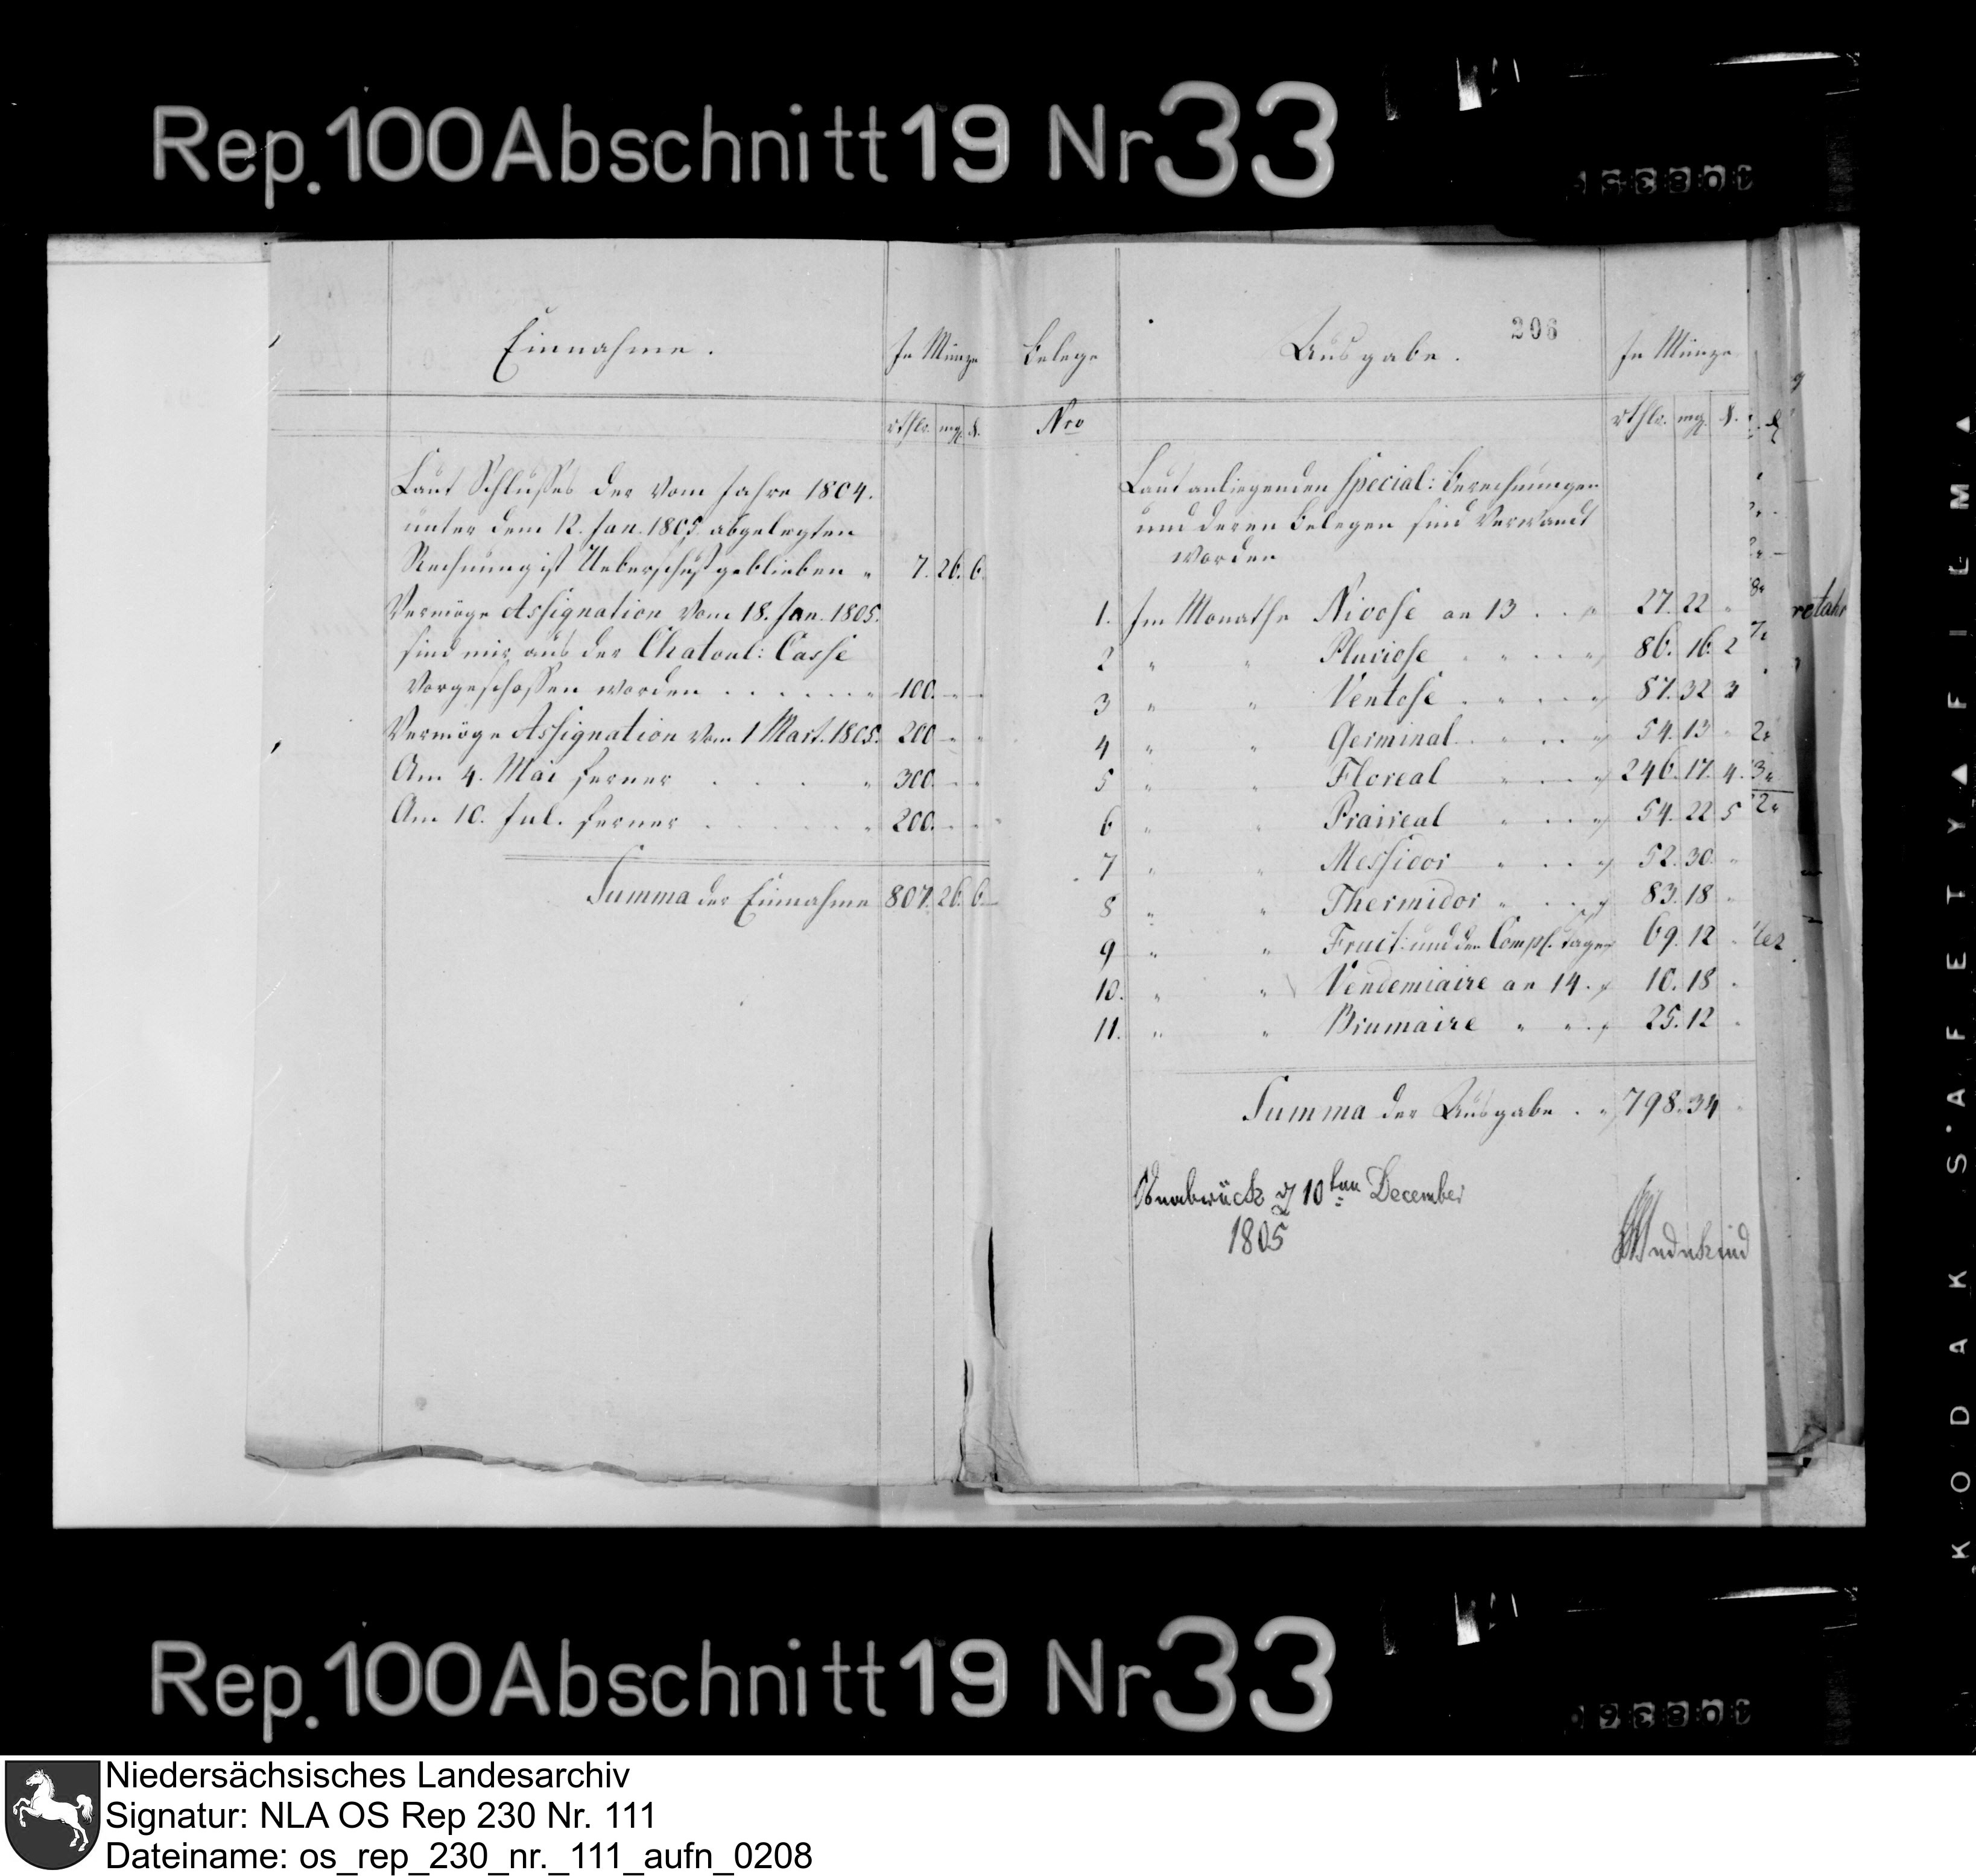 Rep. 100 Abschnitt 19 Nr 33
Einnahme.
In Münze
rthlr. mg. ₰.
Laut Schlußes der vom Jahre 1804.
unter dem 12. Jan. 1805 abgelegten
Rechnung ist Ueberschuß geblieben " 7. 26. 6.
Vermöge Assignation vom 18. Jan. 1805.
sind mir aus der Chatoul: Casse
vorgeschossen worden . . . . . . " 100. - -
Vermöge Assignation vom 1 Mart. 1805. 200 - -
Am 4. Mai ferner . . . . " 300. - -
Am 10. Jul. ferner . . . . " 200. - -
Summa der Einnahme 807. 26. 6.
206
Belege
Nro
Ausgabe.
In Münze
rthlr. mg. ₰.
Laut anliegenden Special: Berechnungen
und deren Belegen sind verwandt
worden
1. Im Monathe Nivose an 13 . . " 27. 22 "
2 " " Pluviose . . . . " 86. 16. 2
3 " " Ventose . . . . " 87. 32 3
4 " " Germinal . . . . " 54. 13 "
5 " " Floreal " . . . " 246. 17. 4.
6 " " Praireal " . . . " 54. 22 5
7 " " Messidor " . . . " 52. 30. "
8 " " Thermidor " . . . " 83. 18 "
9 " " Fruct: und den Compl. Tagen 69. 12 "
10. " " Vendemiaire an 14. " 10. 18 "
11. " " Brumaire " " . " 25. 12 "
Summa der Ausgabe . " 798. 34 "
Osnabrück d 10ten December
1805
Wedekind
Rep. 100 Abschnitt 19 Nr 33
KODAK SAFETY FILM
Niedersächsisches Landesarchiv
Signatur: NLA OS Rep 230 Nr. 111
Dateiname: os_rep_230_nr._111_aufn_0208